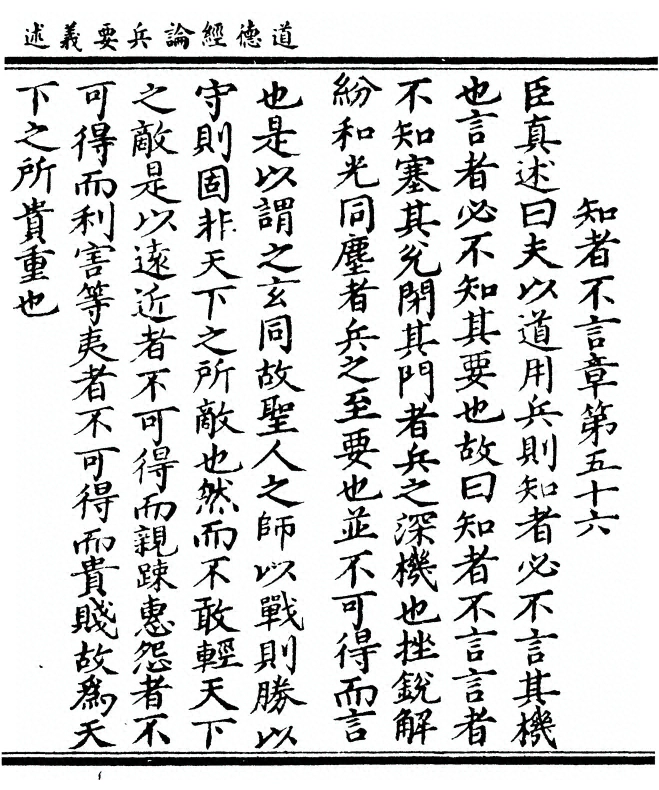 道德經論兵要義述
知者不言章第五十六
臣真述曰夫以道用兵則知者必不言其機
也言者必不知其要也故曰知者不言言者
不知塞其兊閉其門者兵之深機也挫銳解
紛和光同塵者兵之至要也並不可得而言
也是以謂之玄同故聖人之師以戰則勝以
守則固非天下之所敵也然而不敢輕天下
之敵是以遠近者不可得而親踈惠怨者不
可得而利害等夷者不可得而貴賤故為天
下之所貴重也